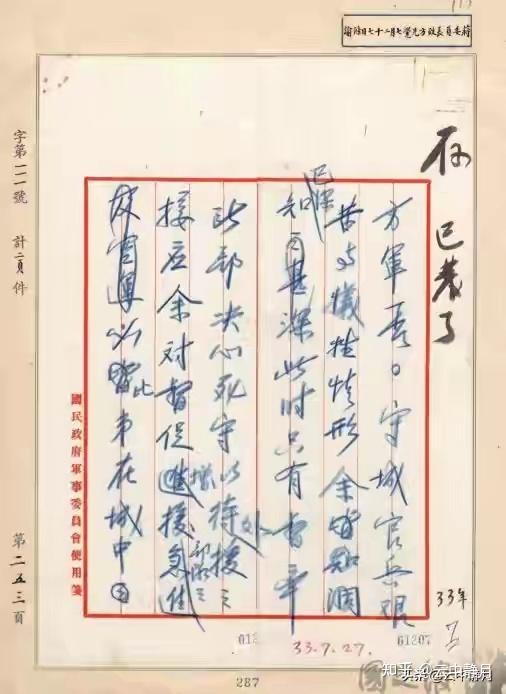 蔣委員長致方先覺七月二十七日
已發了
方軍長。守城官兵艱
苦與犧牲情形余皆
知之甚深此時只有督率
所部決心死守以待外援之
接應余對督促增援部隊之急進
在城中
國民政府軍事委員會便用箋
字第一一一號 計二頁件
第二五三頁
33年
33.7.27.
61207
287
知乎 @云中静月
头条 @云中静月